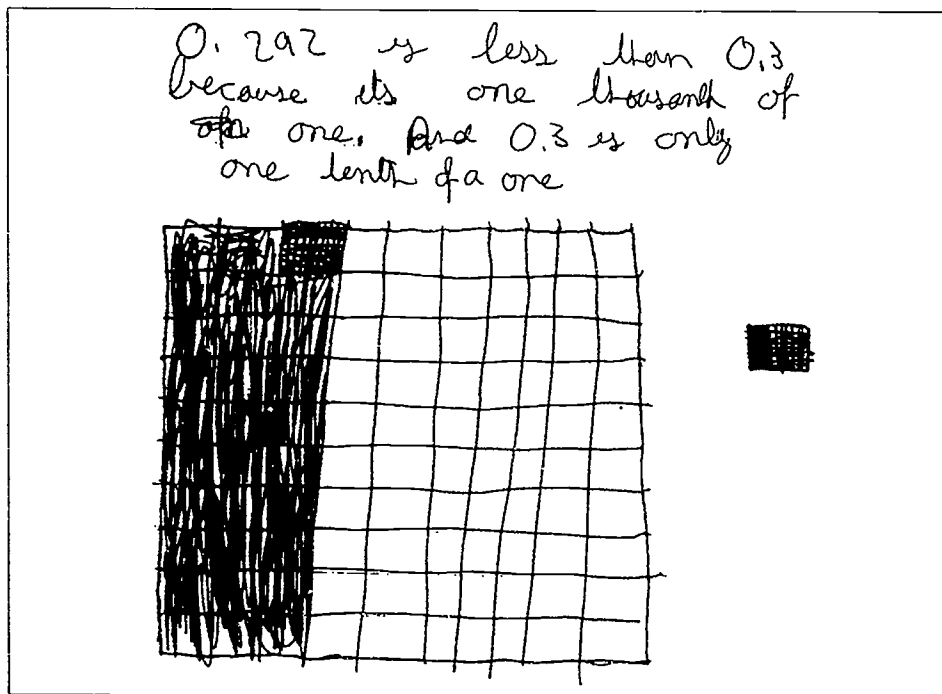 0.292 is less than 0.3
because its one thousanth of
one. And 0.3 is only
one tenth of a one